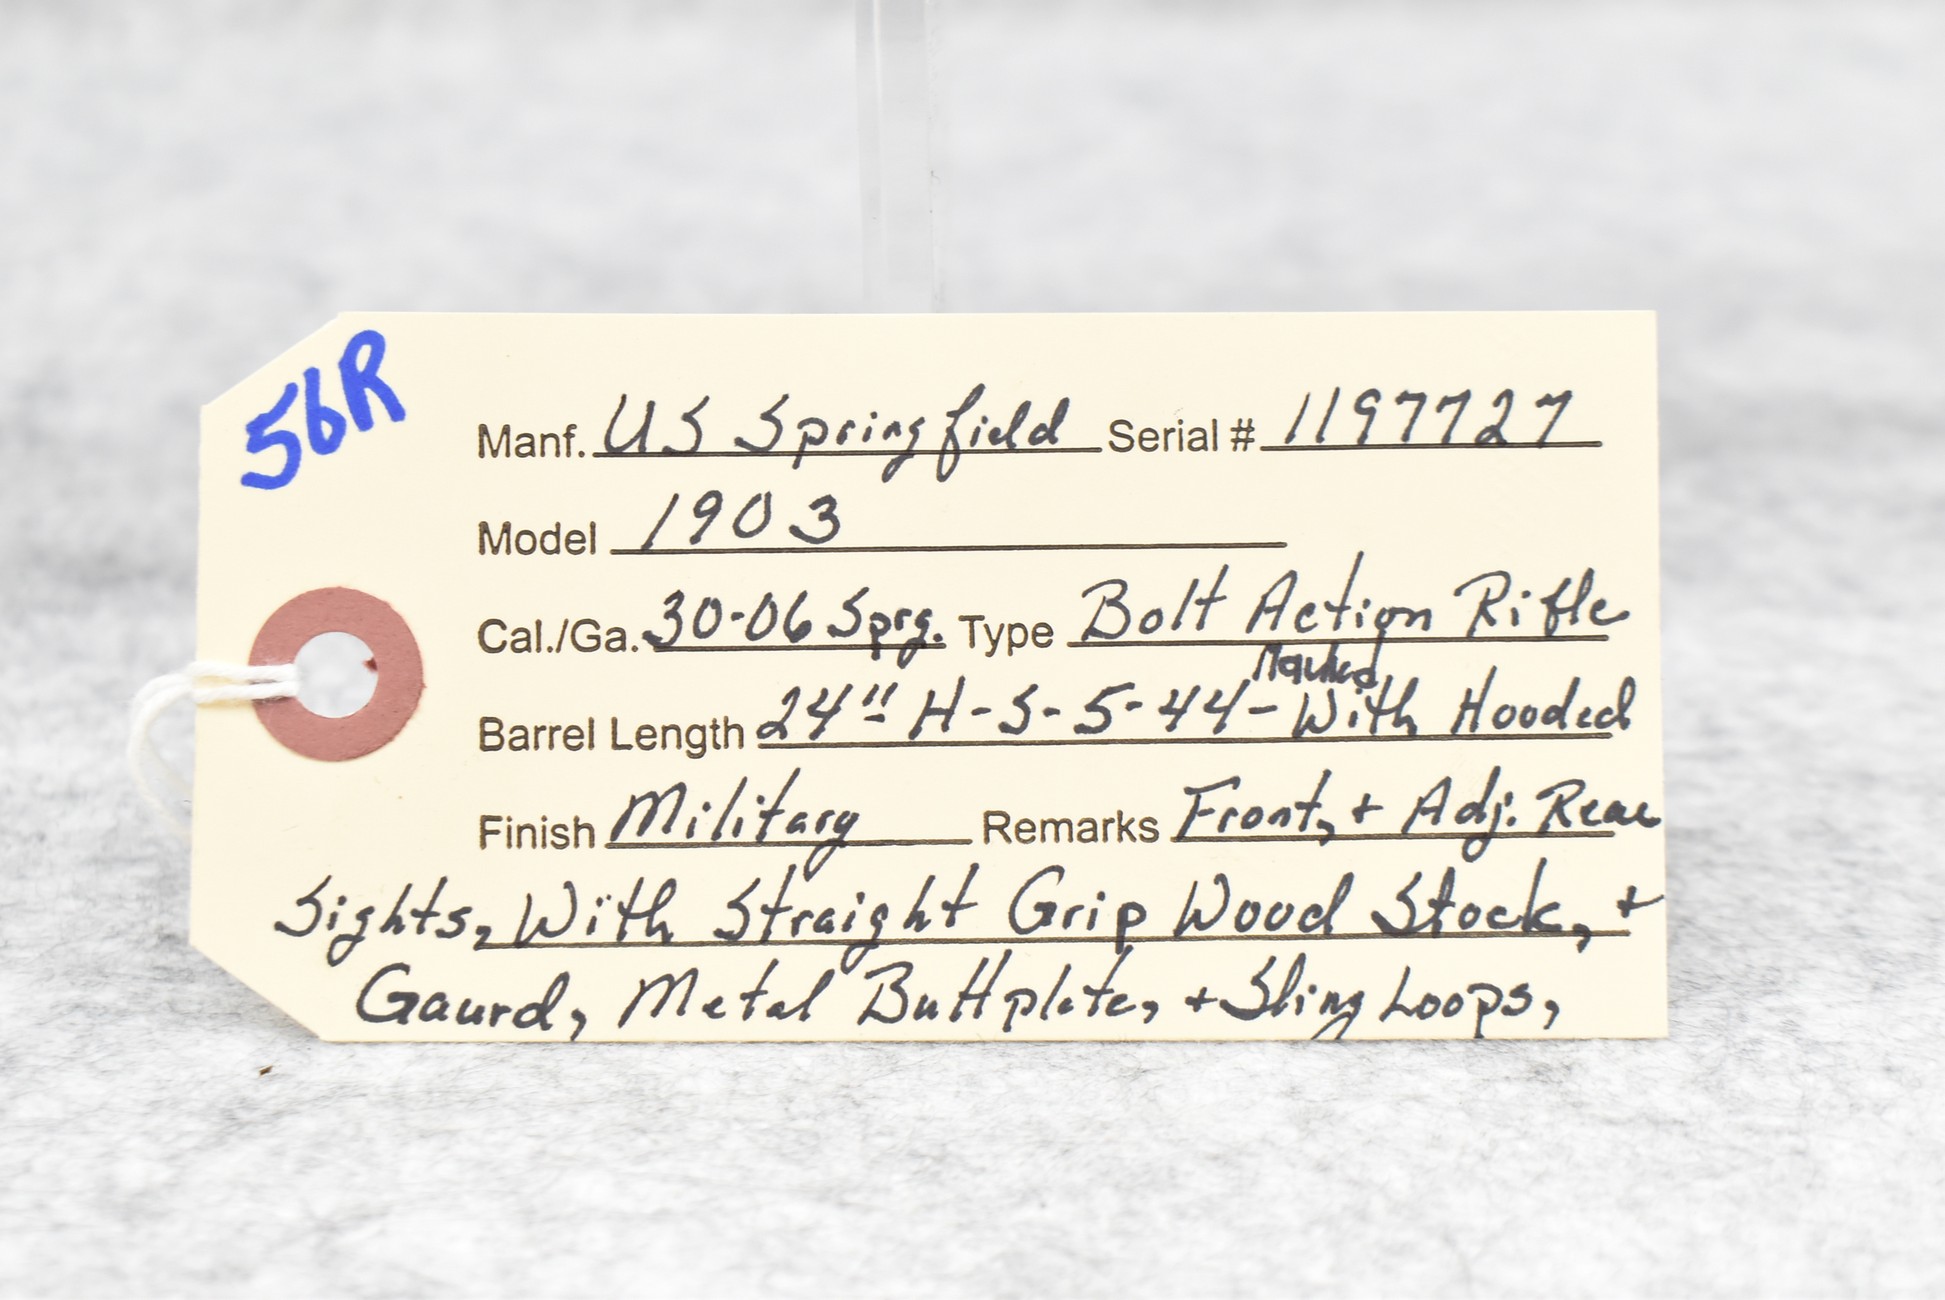 56R
Manf. US Springfield Serial # 1197727
Model 1903
Cal./Ga. 30-06 Sprg. Type Bolt Action Rifle
Marked
Barrel Length 24" H-S-5-44- With Hooded
Finish Military Remarks Front, + Adj. Rear
Sights, With Straight Grip Wood Stock, +
Gaurd, Metal Buttplate, + Sling Loops,